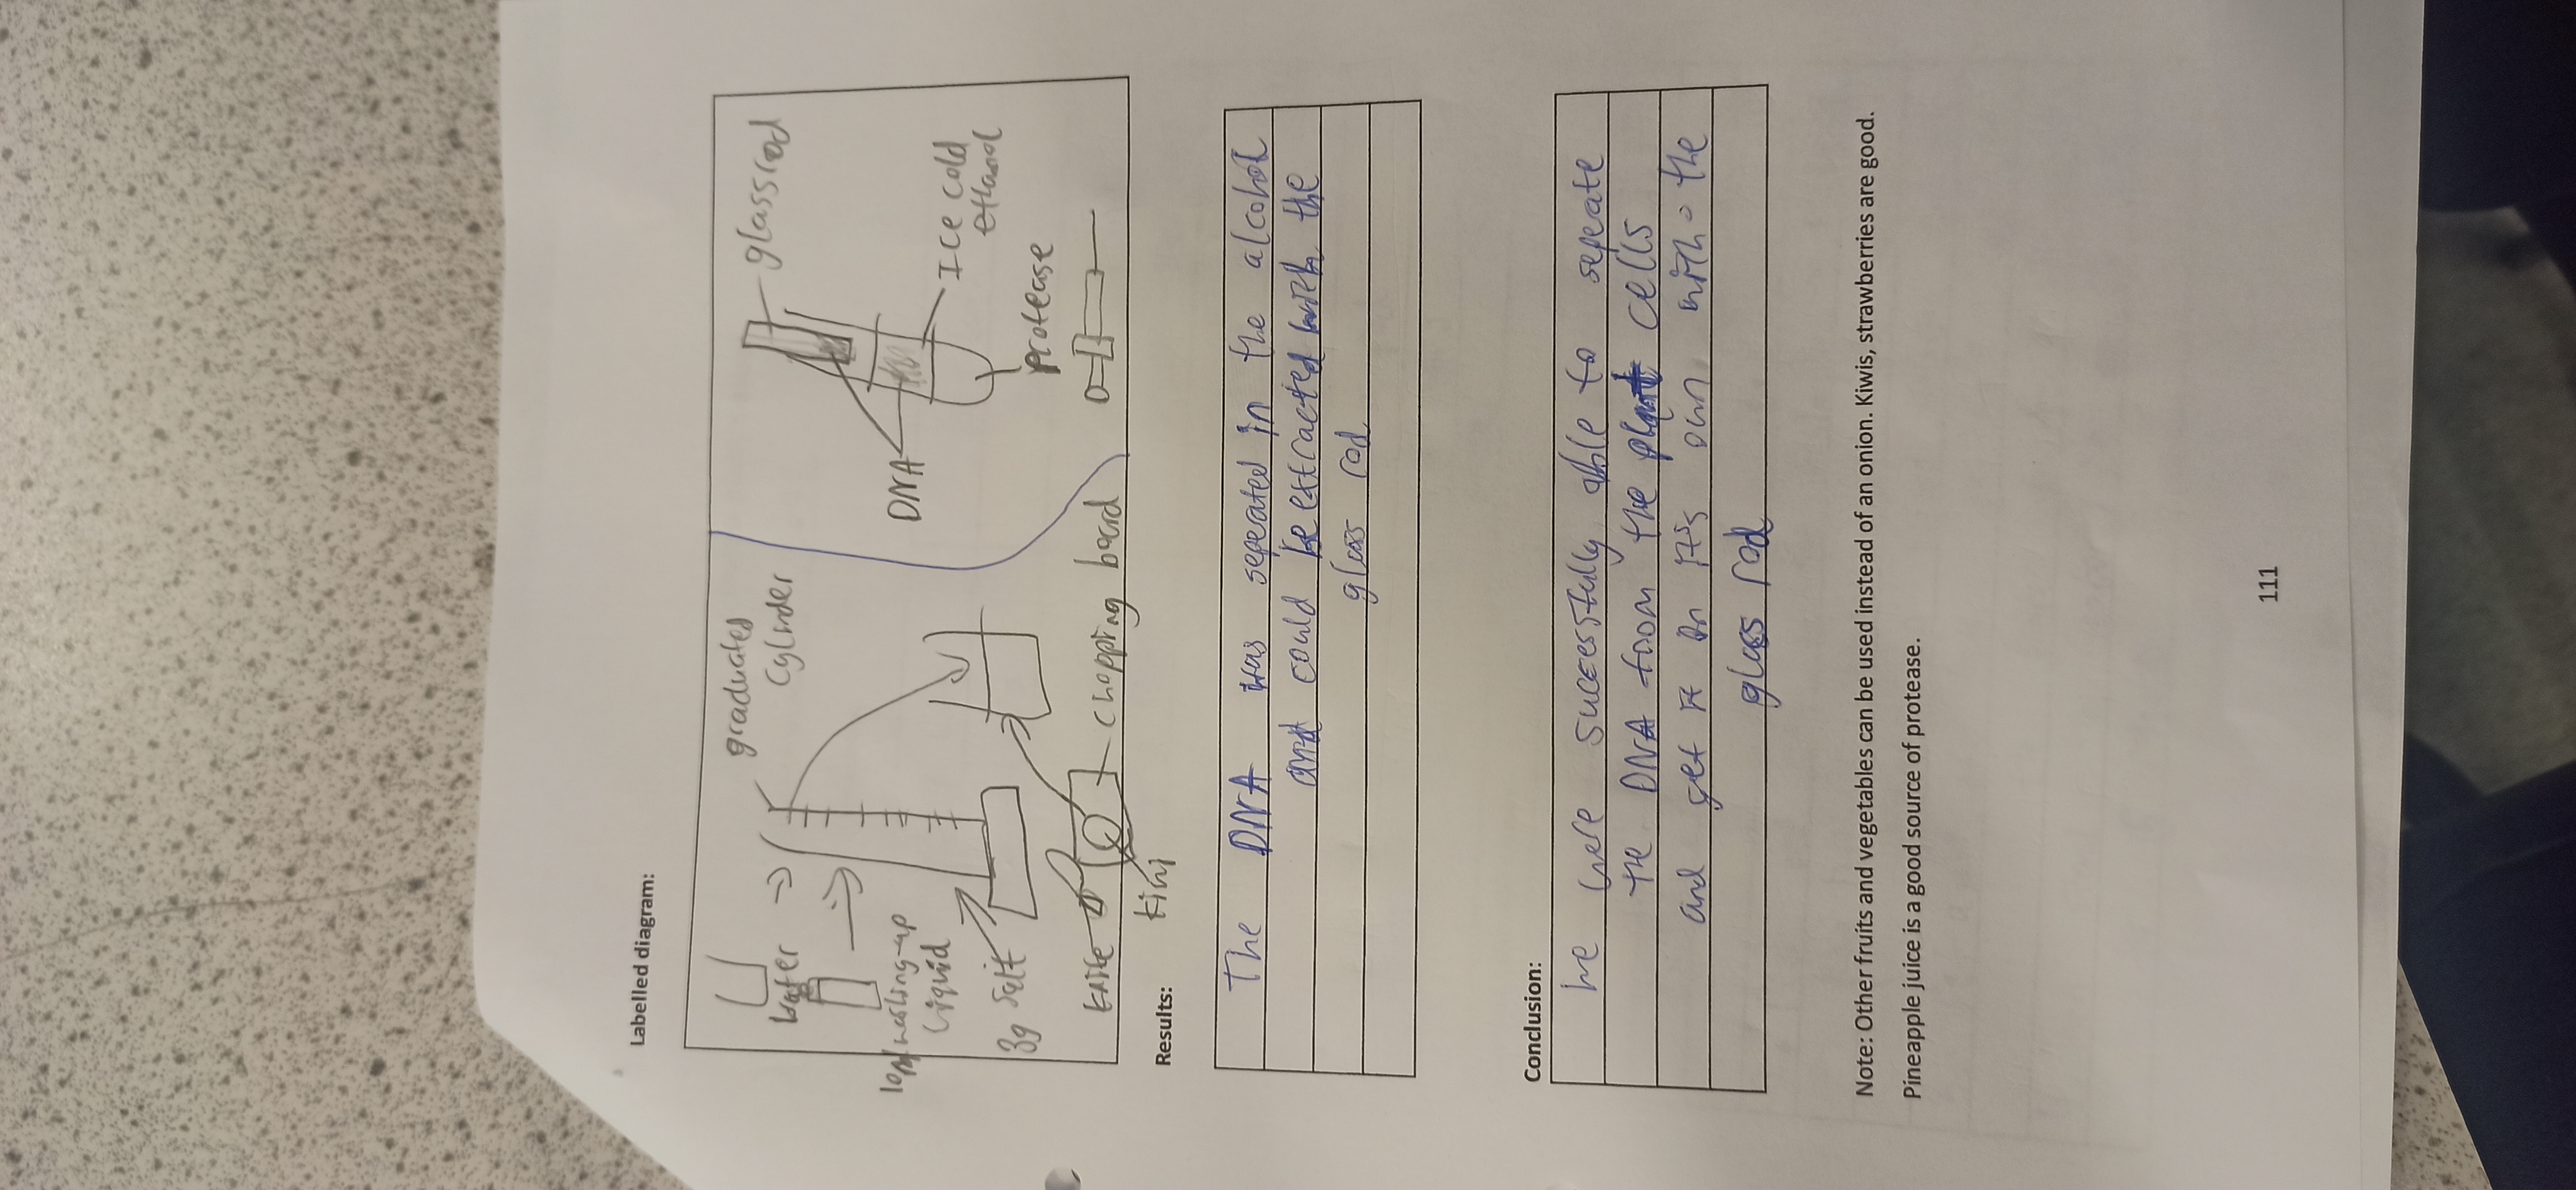 Labelled diagram:
graduated
cylinder
water
10ml washing-up
liquid
3g salt
knife
kiwi
chopping board
glass rod
DNA
Ice cold
ethanol
protease
Results:
The DNA was seperated in the alcohol
and could be extracted with the
glass rod
Conclusion:
We were successfully able to seperate
the DNA from the plant cells
and get it on it's own with the
glass rod
Note: Other fruits and vegetables can be used instead of an onion. Kiwis, strawberries are good.
Pineapple juice is a good source of protease.
111